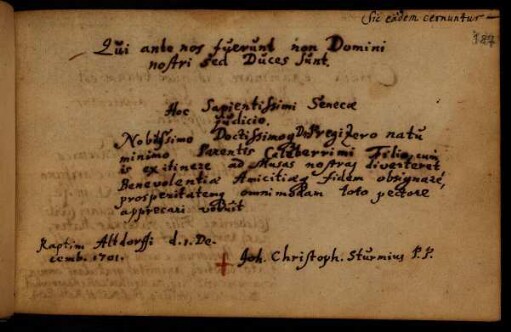 Sic eadem cernuntur
127
Qui ante nos fuerunt non Domini
nostri sed Duces sunt.
Hoc Sapientissimi Senecæ
judicio.
Nobilissimo Doctissimoq Dn Pregizero natu
minimo Parentis Celeberrimi Filio, cum
is ex itinere ad Musas nostras diverteret
Benevolentiæ Amicitiæq fidem obsignare,
prosperitatem omnimodam toto pectore
apprecari voluit
Raptim Altdorffi d. 1. De-
cemb. 1701.
Joh. Christoph. Sturmius P. P.